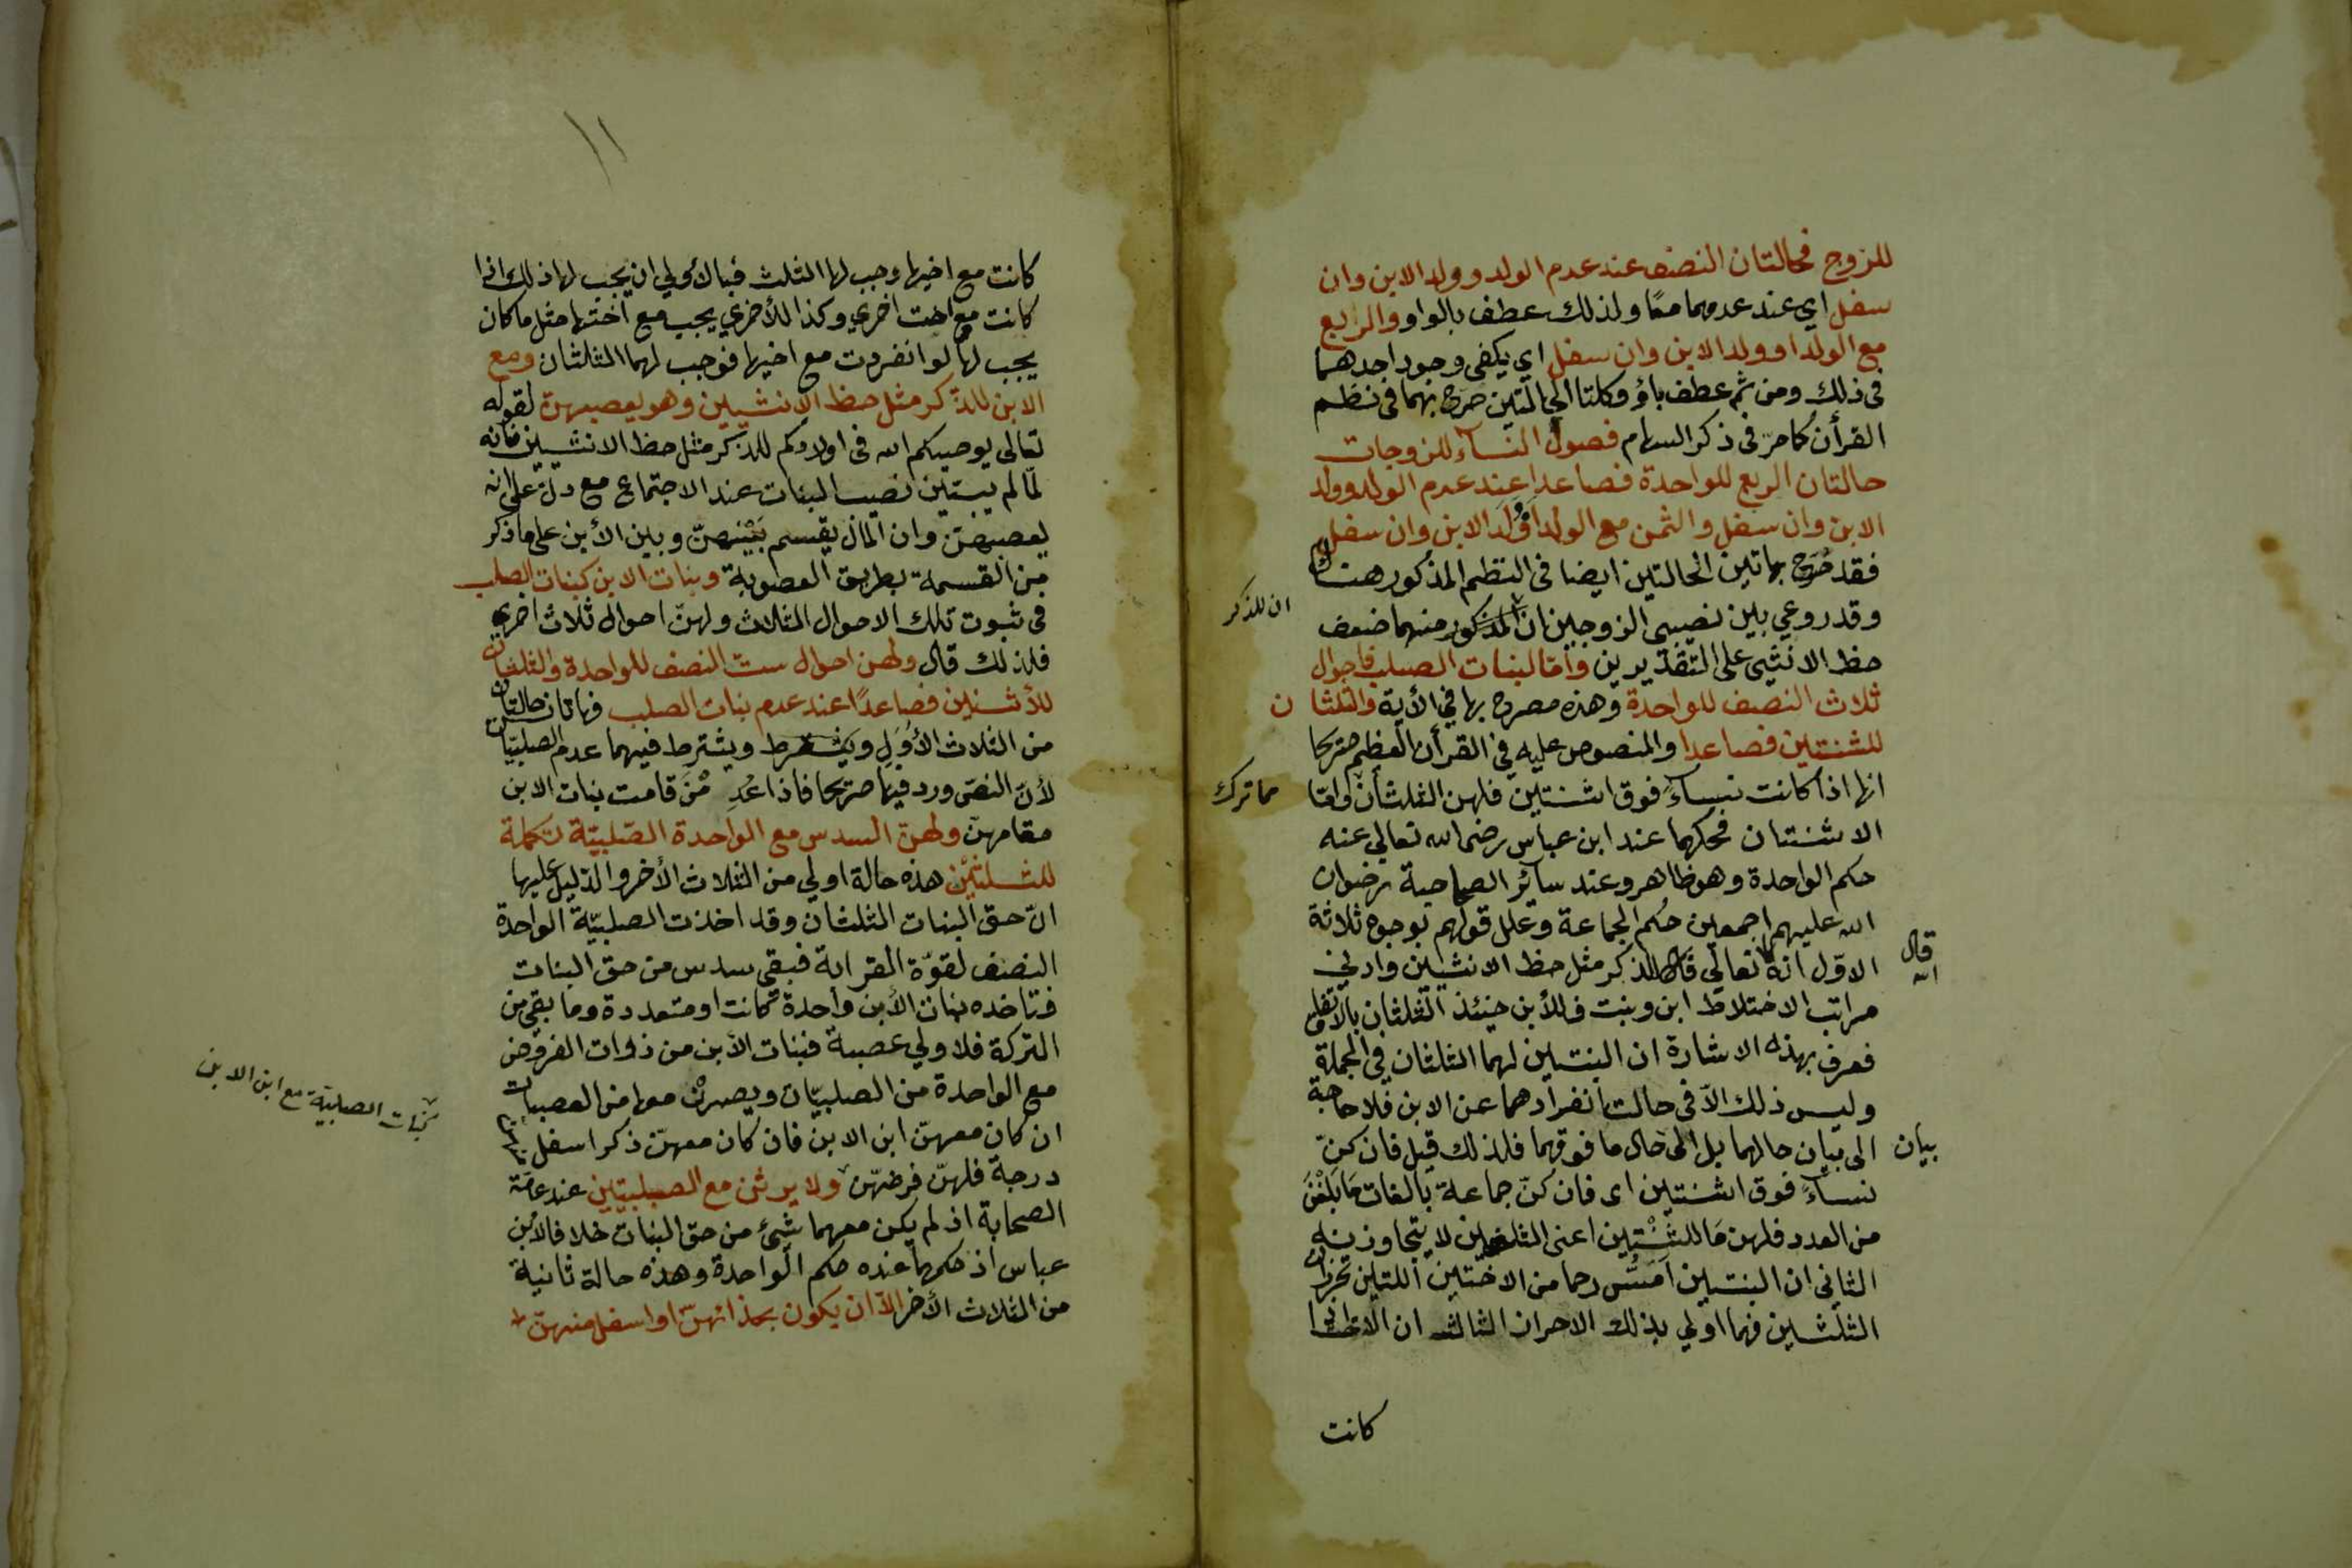 للزوج فحالتان النصف عند عدم الولد وولد الابن وان
سفل اي عند عدمهما معًا ولذلك عطف بالواو والربع
مع الولد او ولد الابن وان سفل اي يكفي وجود احدهما
في ذلك ومن ثم عطف باو وكلتا الحالتين صرح بهما في نظم
القرأن كما مر في ذكر السهام فصول النسآء للزوجات
حالتان الربع للواحدة فصاعدا عند عدم الولد وولد
الابن وان سفل والثمن مع الولد او ولد الابن وان سفل
فقد صُرح بهاتين الحالتين ايضا في النظم المذكور هناك
وقد روعي بين نصيبي الزوجين ان المذكور منهما ضعف
ان للذكر
حظ الانثي على التقديرين وأمّا لبنات الصلب فاحوال
ثلاث النصف للواحدة وهذه مصرح بها في الأية والثلثان
للثنتين فصاعدا والمنصوص عليه في القرأن العظيم صريحا
انها اذا كانت نسآءً فوق اثنتين فلهن الثلثان وامّا
مما ترك
الاثنتان فحكمهما عند ابن عباس رضى الله تعالي عنه
حكم الواحدة وهو ظاهر وعند سآئر الصحابة رضوان
الله عليهم اجمعين حُكم الجماعة وعلل قولهم بوجوه ثلاثة
الاوّل انه تعالي قال للذكر مثل حظ الانثيين وادني
قال الله
مراتب الاختلاط ابن وبنت فللأبن حينئذ الثلثان بالاتفاق
فعرف بهذه الاشارة ان البنتين لهما الثلثان في الجملة
وليس ذلك الاّ في حالت انفرادهما عن الابن فلا حاجة
الى بيان حالهما بل الى حال ما فوقهما فلذلك قيل فان كنّ
بيان
نسآءً فوق اثنتين اى فان كنّ جماعة بالغات مَا بَلَغْنَ
من العدد فلهن مَا للثنْتين اعنى الثلثين لا يتجاوزنه
الثانى ان البنتين اَمَسُّ رحما من الاختين اللتين تحرزان
الثلثين فهما اولي بذلك الاحراز الثالث ان البنت اذا
كانت
١١
كانت مع اخيها وجب لها الثلث فبالأولي ان يجب لها ذلك اذا
كانت مع اخت اخرى وكذا للأخري يجب مع اختها مثل ما كان
يجب لها لو انفردت مع اخيها فوجب لهما الثلثان ومع
الابن للذكر مثل حظ الانثيين وهو يعصبهن لقوله
تعالى يوصيكم الله في اولادكم للذكر مثل حظ الانثيين فانه
لمّا لم يبين نصيب البنات عند الاجتماع مع دلّ على انه
يعصبهنّ وان المال يقسم بَيْنهنّ وبين الأبن على ما ذكر
من القسمة بطريق العصوبة وبنات الابن كبنات الصلب
في ثبوت تلك الاحوال الثلاث ولهنّ احوال ثلاث اخري
فلذلك قال ولهن احوال ستّ النصف للواحدة والثلثان
للأثنين فصاعدًا عند عدم بنات الصلب فهاتان حالتان
من الثلاث الأوَل ويشترط ويشترط فيهما عدم الصلبيّات
لأنّ النص ورد فيها صريحا فاذا عُدِ مْنَ قامت بنات الابن
مقامهنّ ولهنّ السدس مع الواحدة الصّلبيّة تكملة
للثلثين هذه حالة اولي من الثلاث الأخر والدليل عليها
انّ حق البنات الثلثان وقد اخذت الصلبيّة الواحدة
النصف لقوّة القرابة فبقي سدس من حق البنات
فتاخذه بنات الأبن واحدة كانت او متعددة وما بقي من
التركة فلا ولي عصبة فبنات الأبن من ذوات الفروض
مع الواحدة من الصلبيّات ويصرن معها من العصبات
كبنات الصلبيّة مع ابن الابن
ان كان معهنّ ابن الابن فان كان معهنّ ذكر اسفل
درجة فلهنّ فرضهنّ ولا يرثن مع الصلبيتين عند عامّة
الصحابة اذ لم يكن معهما شئ من حق البنات خلافا لابن
عباس اذ حكمهما عنده حكم الواحدة وهذه حالة ثانية
من الثلاث الأخر الاّ ان يكون بحذائهنّ او اسفل منهنّ